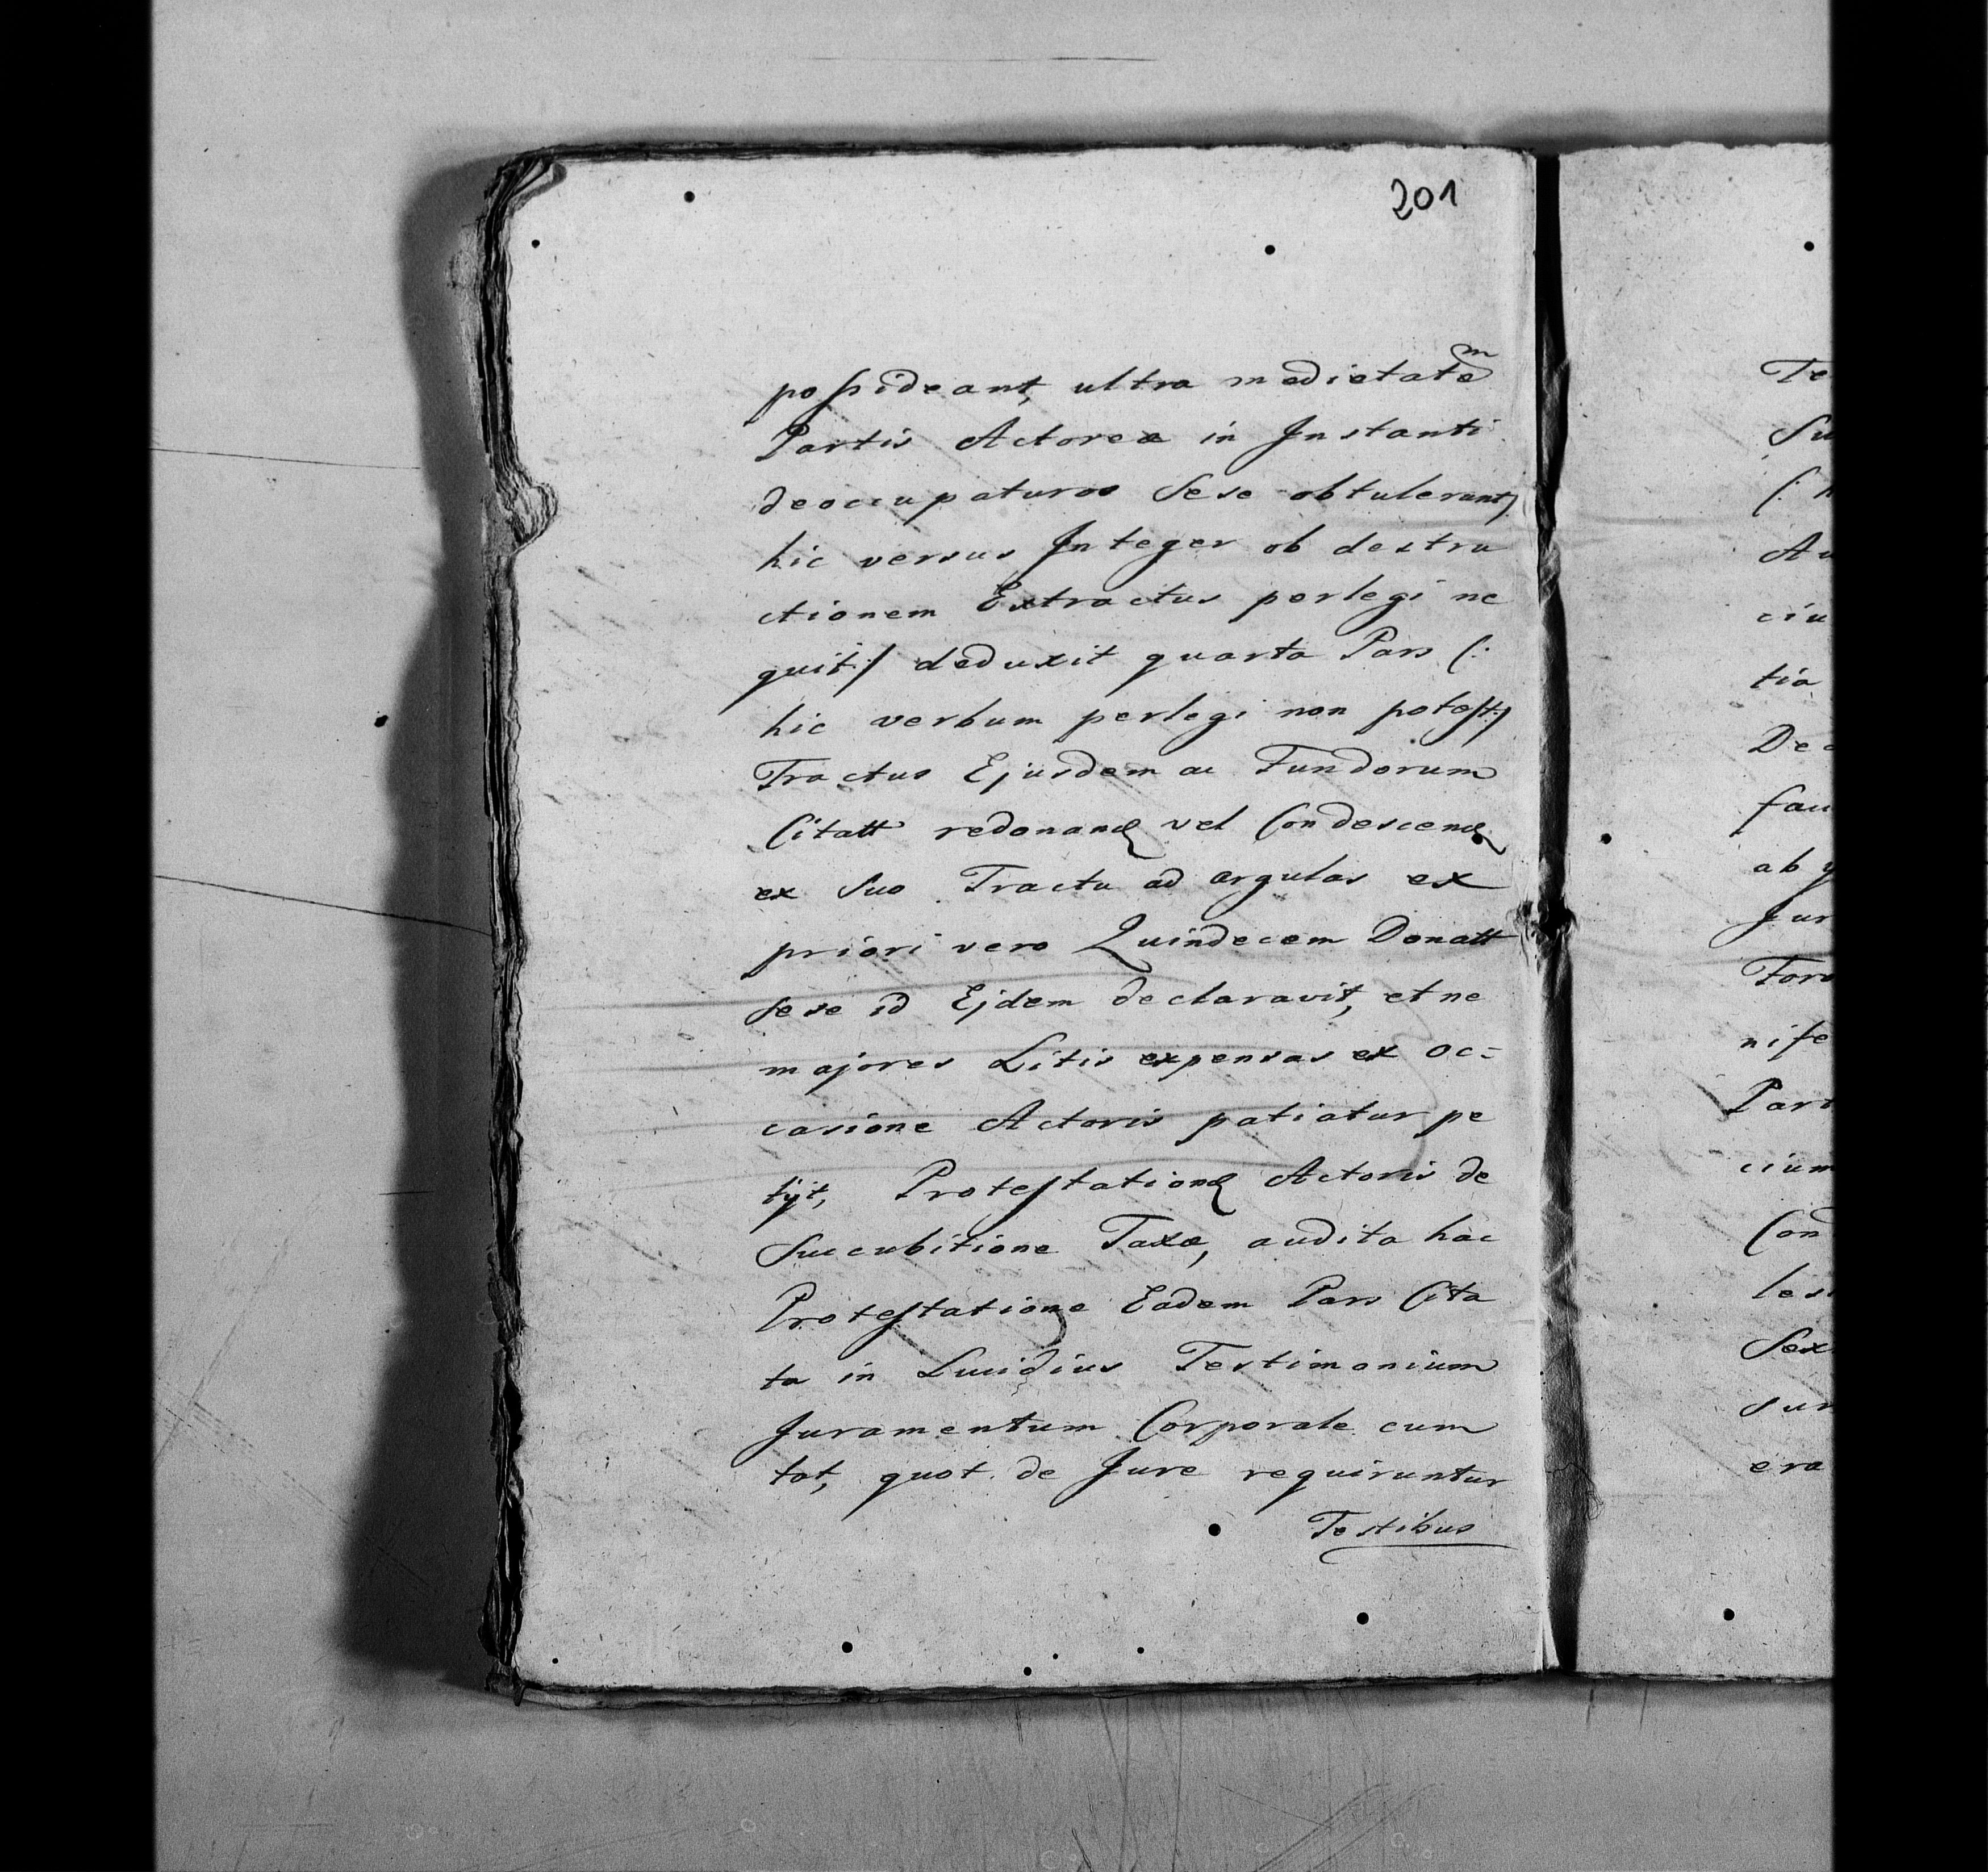 201
possideant, ultra medietatem
Partis Actoreæ in Instanti
deoccupaturos Sese obtulerunt/
hic versus Integer ob destru
ctionem Extractus perlegi ne
quit:/ deduxit quarta Pars (:
hic verbum perlegi non potest:/
Tractus Ejusdem ac Fundorum
Citatt redonand vel Condescend
ex Suo Tractu ad argulas ex
priori vero Quindecem Donatt
sese id Ejdem declaravit, et ne
majores Litis expensas ex oc=
casione Actoris patiatur pe
tijt, Protestatione Actoris de
Succubitione Taxæ, audita hac
Protestatione Eadem Pars Cita
ta in Lucidius Testimonium
Juramentum Corporale cum
tot, quot de Jure requiruntur
Testibus
Te
Su
(: h
Au
ciu
tia
De
fau
ab
Jur
Foro
nife
Part
cium
Con
les
Sex
sur
era